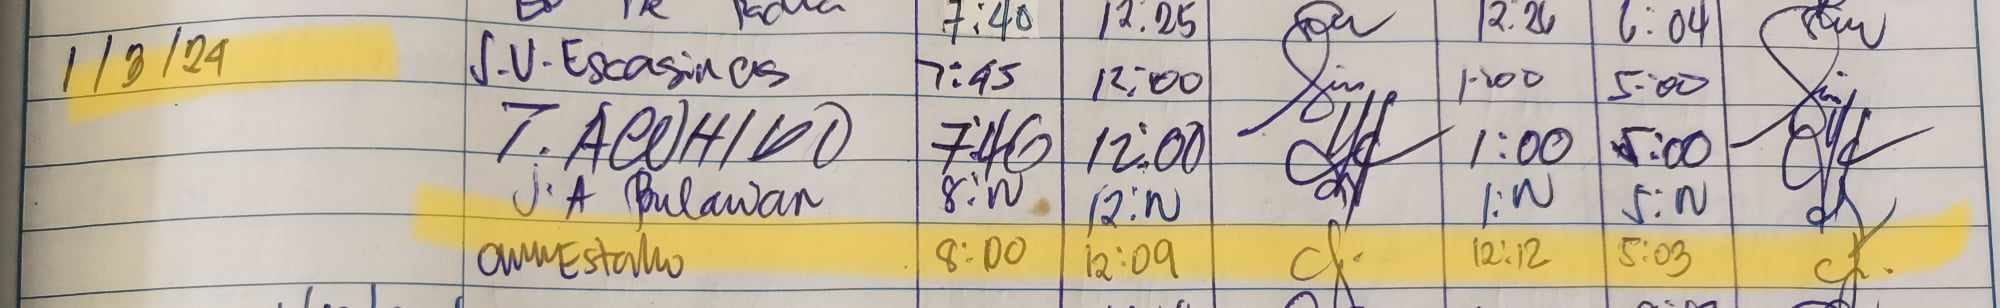 7:40 12:25 12:26 6:04
1/3/24 J.V. Escasinas 7:45 12:00 1:00 5:00
T. ACOHIDO 7:46 12:00 1:00 5:00
J.A Bulawan 8:N 12:N 1:N 5:N
8:00 12:09 12:12 5:03